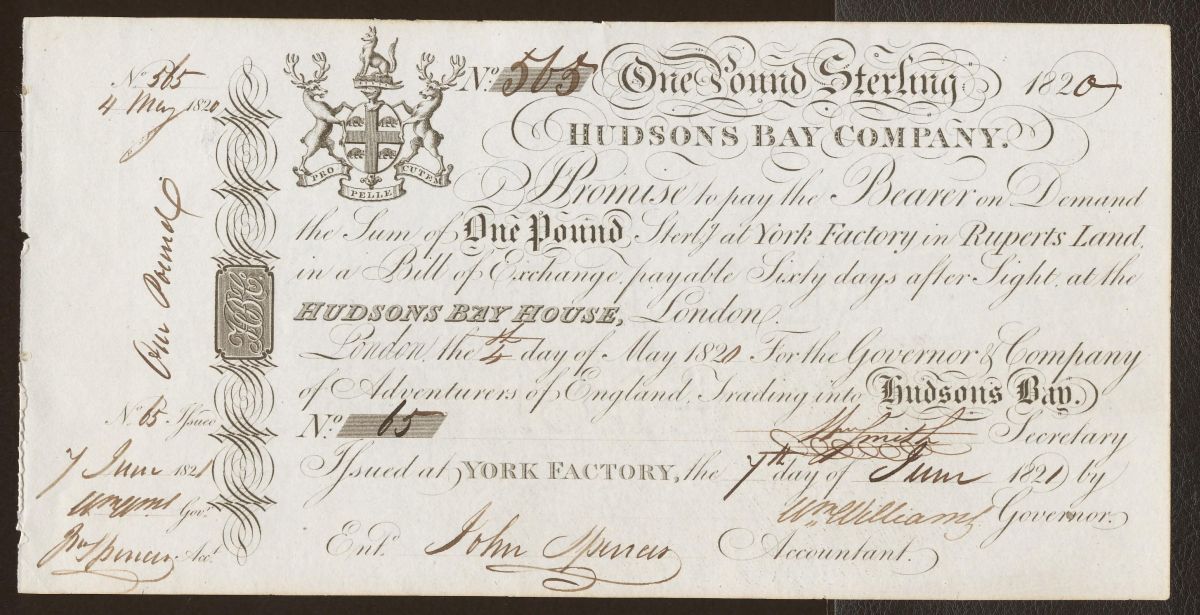 No. 565
4 May 1820
One Pound
HBC
No. 65 Issued
7 June 1821
Wm Wms Govr.
Jno Spencer Acct.
PRO PELLE CUTEM
No. 565 One Pound Sterling 1820
HUDSONS BAY COMPANY.
I Promise to pay the Bearer on Demand
the Sum of One Pound Sterlg. at York Factory in Ruperts Land,
in a Bill of Exchange, payable Sixty days after Sight, at the
HUDSONS BAY HOUSE, London.
London, the 4th day of May 1820. For the Governor & Company
of Adventurers of England, Trading into Hudsons Bay.
No. 65 Wm Smith Secretary
Issued at YORK FACTORY, the 7th day of June 1821 by
Wm Williams Governor.
Entd. John Spencer Accountant.